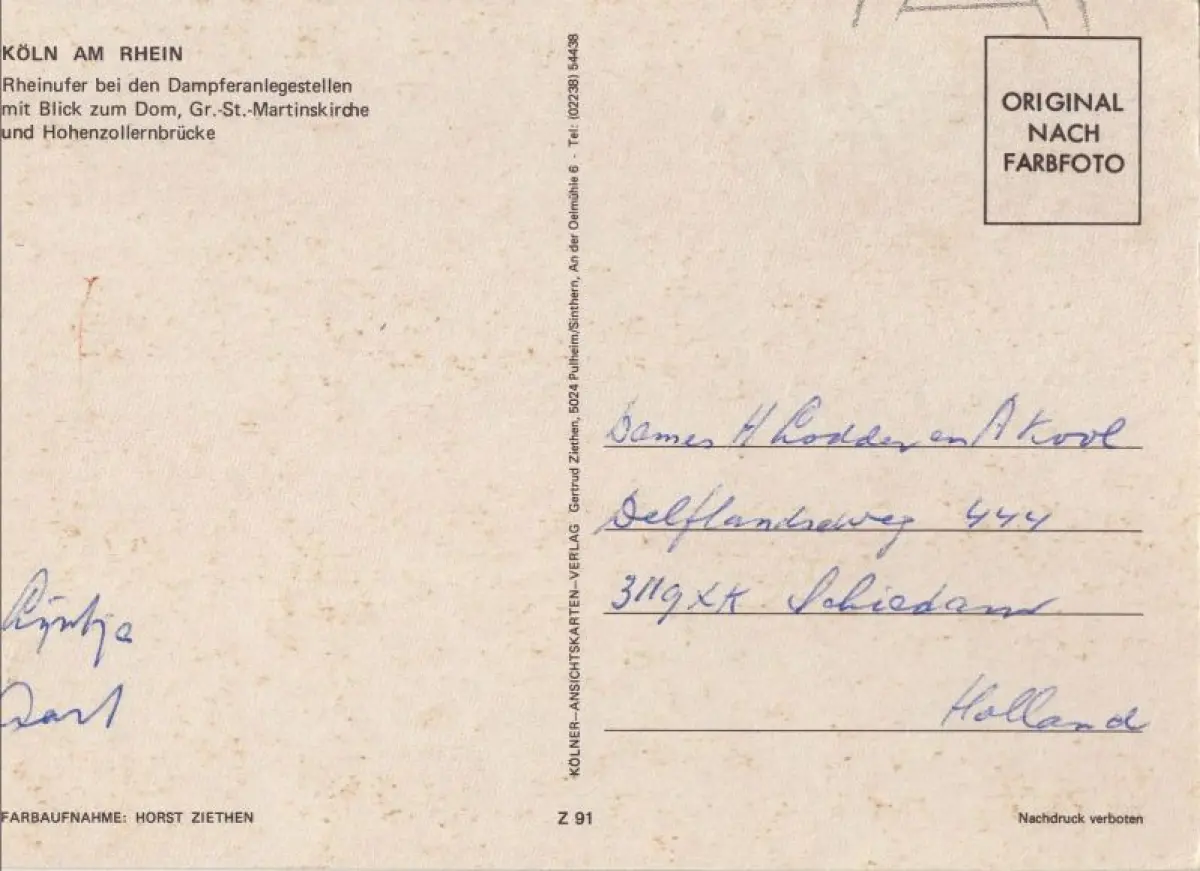 KÖLN AM RHEIN
Rheinufer bei den Dampferanlegestellen
mit Blick zum Dom, Gr.-St.-Martinskirche
und Hohenzollernbrücke
Lijntje
KÖLNER-ANSICHTSKARTEN-VERLAG Gertrud Ziethen, 5024 Pulheim/Sinthern, An der Oelmühle 6 - Tel: (02238) 54438
ORIGINAL
NACH
FARBFOTO
Dames H Lodder en A Kool
Delflandseweg 444
3119XK Schiedam
Holland
FARBAUFNAHME: HORST ZIETHEN
Z 91
Nachdruck verboten